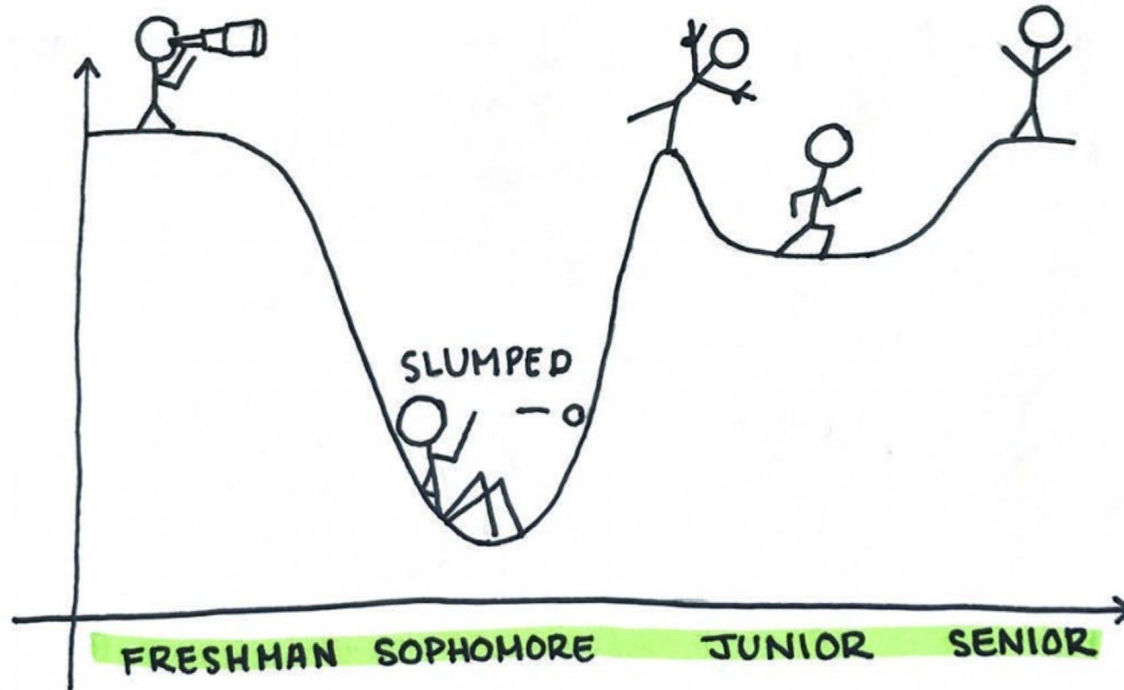 SLUMPED
FRESHMAN SOPHOMORE JUNIOR SENIOR